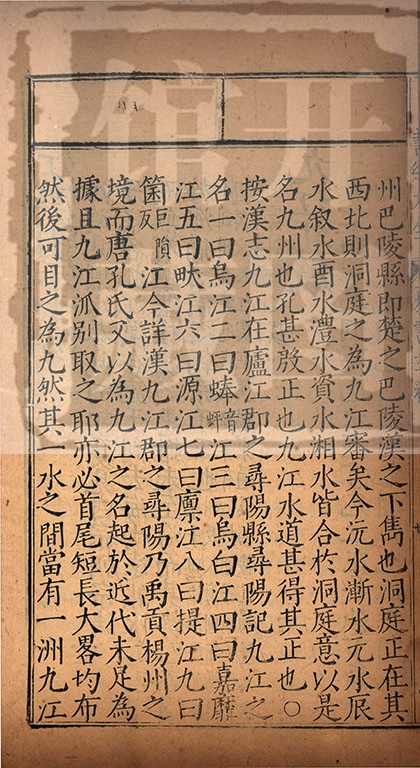 州巴陵縣即楚之巴陵漢之下雋也洞庭正在其
西北則洞庭之為九江審矣今沅水漸水元水辰
水叙水酉水澧水資水湘水皆合於洞庭意以是
名九州也孔甚殷正也九江水道甚得其正也〇
按漢志九江在廬江郡之尋陽縣尋陽記九江之
名一曰烏江二曰蜯音蚌江三曰烏白江四曰嘉靡
江五曰畎江六曰源江七曰廩江八曰提江九曰
箘巨隕反江今詳漢九江郡之尋陽乃禹貢楊州之
境而唐孔氏又以為九江之名起於近代未足為
據且九江派别取之耶亦必首尾短長大畧均布
然後可目之為九然其一水之間當有一洲九江